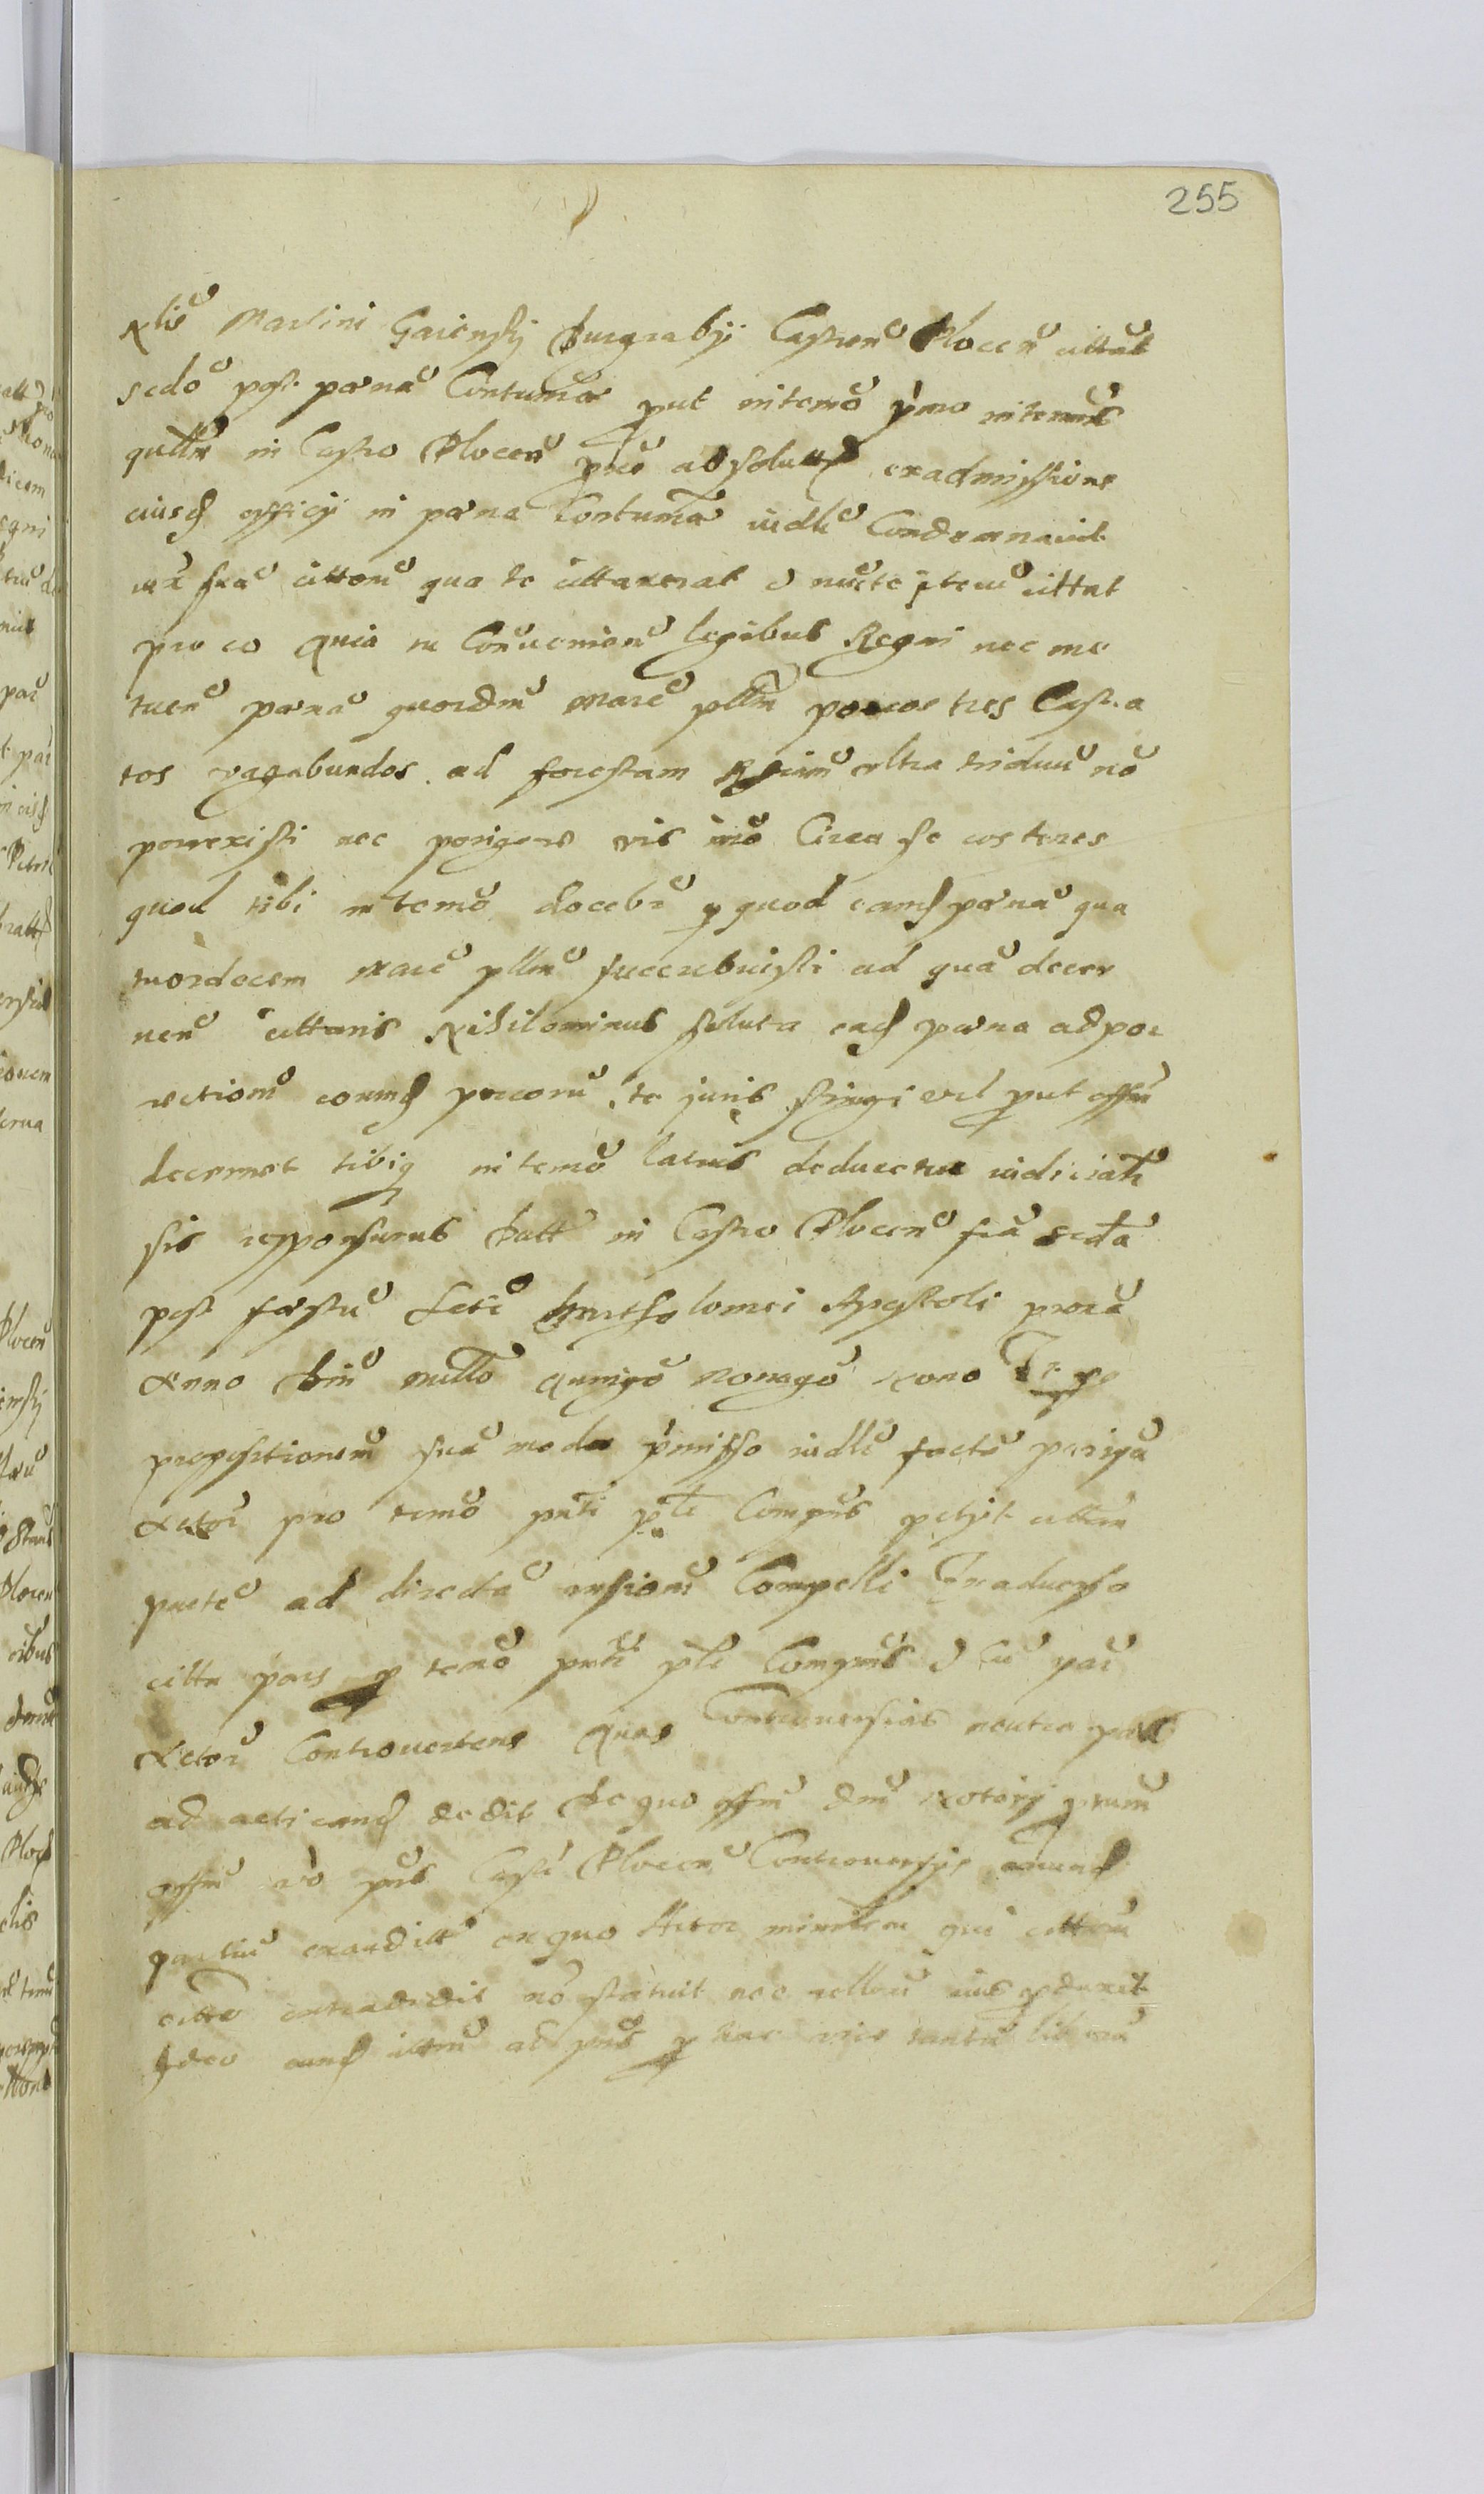 255
Nlis Martini Gaiensky Burgrabÿ Castren Plocen citat
secdo post pœna Contumā put in temo pmo in termis
in Castro Plocen absolut ex admissione
eiusd officÿ in pœna Contumā iudli Condemnavit
sua citton qua te cittaverat & nucte itew cittat
pro eo Quia tu Contravenien legibus Regni nec me
tuen pœna quordm Marc pllm porcos tres Castra
tos vagabundos ad forestam Regiam vltra triduu nō
porrexisti nec porigere vis imo Circa se eos tenes
quod tibi in temo docebr p quod eamd pœna qua
tuordecem Marc pllm succubuisti ad qua decer
nen cittaris Nihilominus soluta ead pœna ad por
rectiom eorumd porcoru te iuris stringi vel put offm
decernet tibiq in temo latius deducetur iudiciatr
sis responsurus Datt in Castro Plocen fia secda
post fœstu Scti Bartholomei Apostoli proxa
Anno Dni millo Quingo nonago nono Et p
propositionem sua modo pmisso iudli facta porrga
Actor pro temo pnti plr Comprns petÿt cittm
parte ad directa rnsiom Compelli Ex adverso
citta pars p temo pnti plr Comprns & cu par
Actor Controvertens Quas Controversias neutra pars
ad acticand dedit De quo offm dm Notarÿ prnm
offm vo pns Castr Plocen Controversÿs amnd
partiu exauditt ex quo Actor ministrm qui cittom
citto extradidit nō statuit nec rellom eius pduxit
Ideo eund cittm ad pns p hac vice tantu liberu